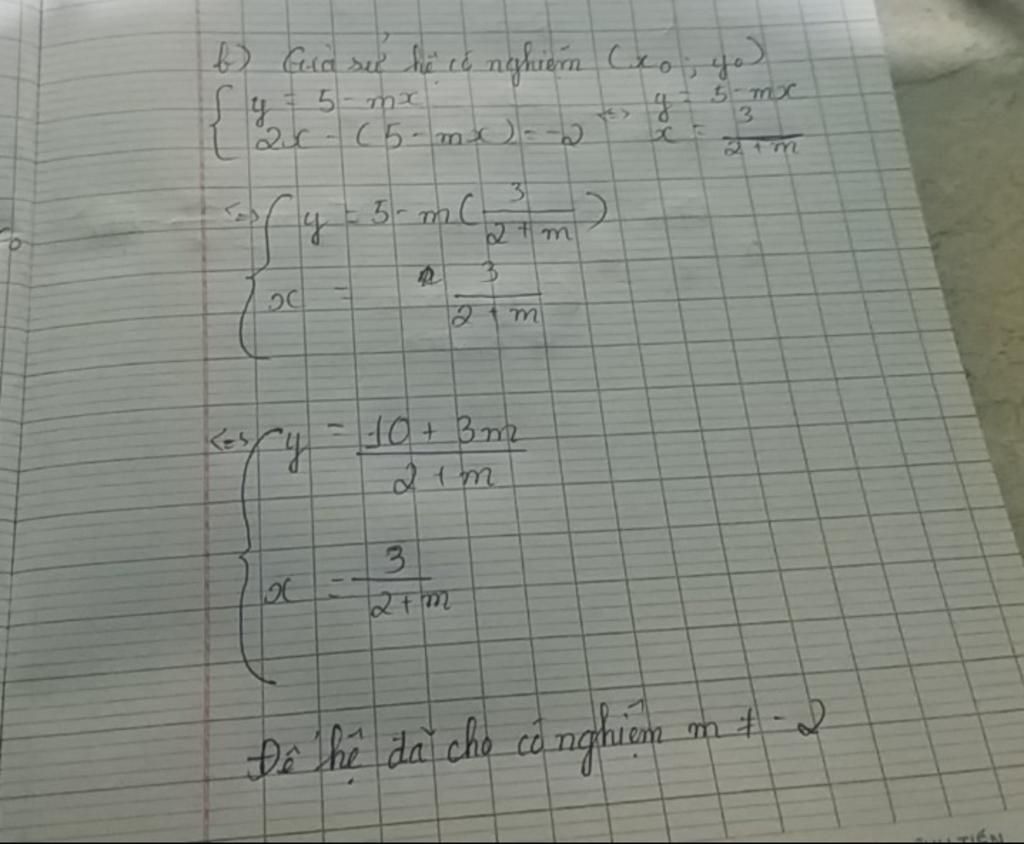 b) Giả sử hệ có nghiệm (x₀; y₀)
{ y = 5 - mx <=> y = 5 - mx
2x - (5 - mx) = -2 x = 3/(2 + m)
<=> { y = 5 - m(3/(2 + m))
x = 3/(2 + m)
<=> { y = (10 + 3m)/(2 + m)
x = 3/(2 + m)
Để hệ đã cho có nghiệm m ≠ -2